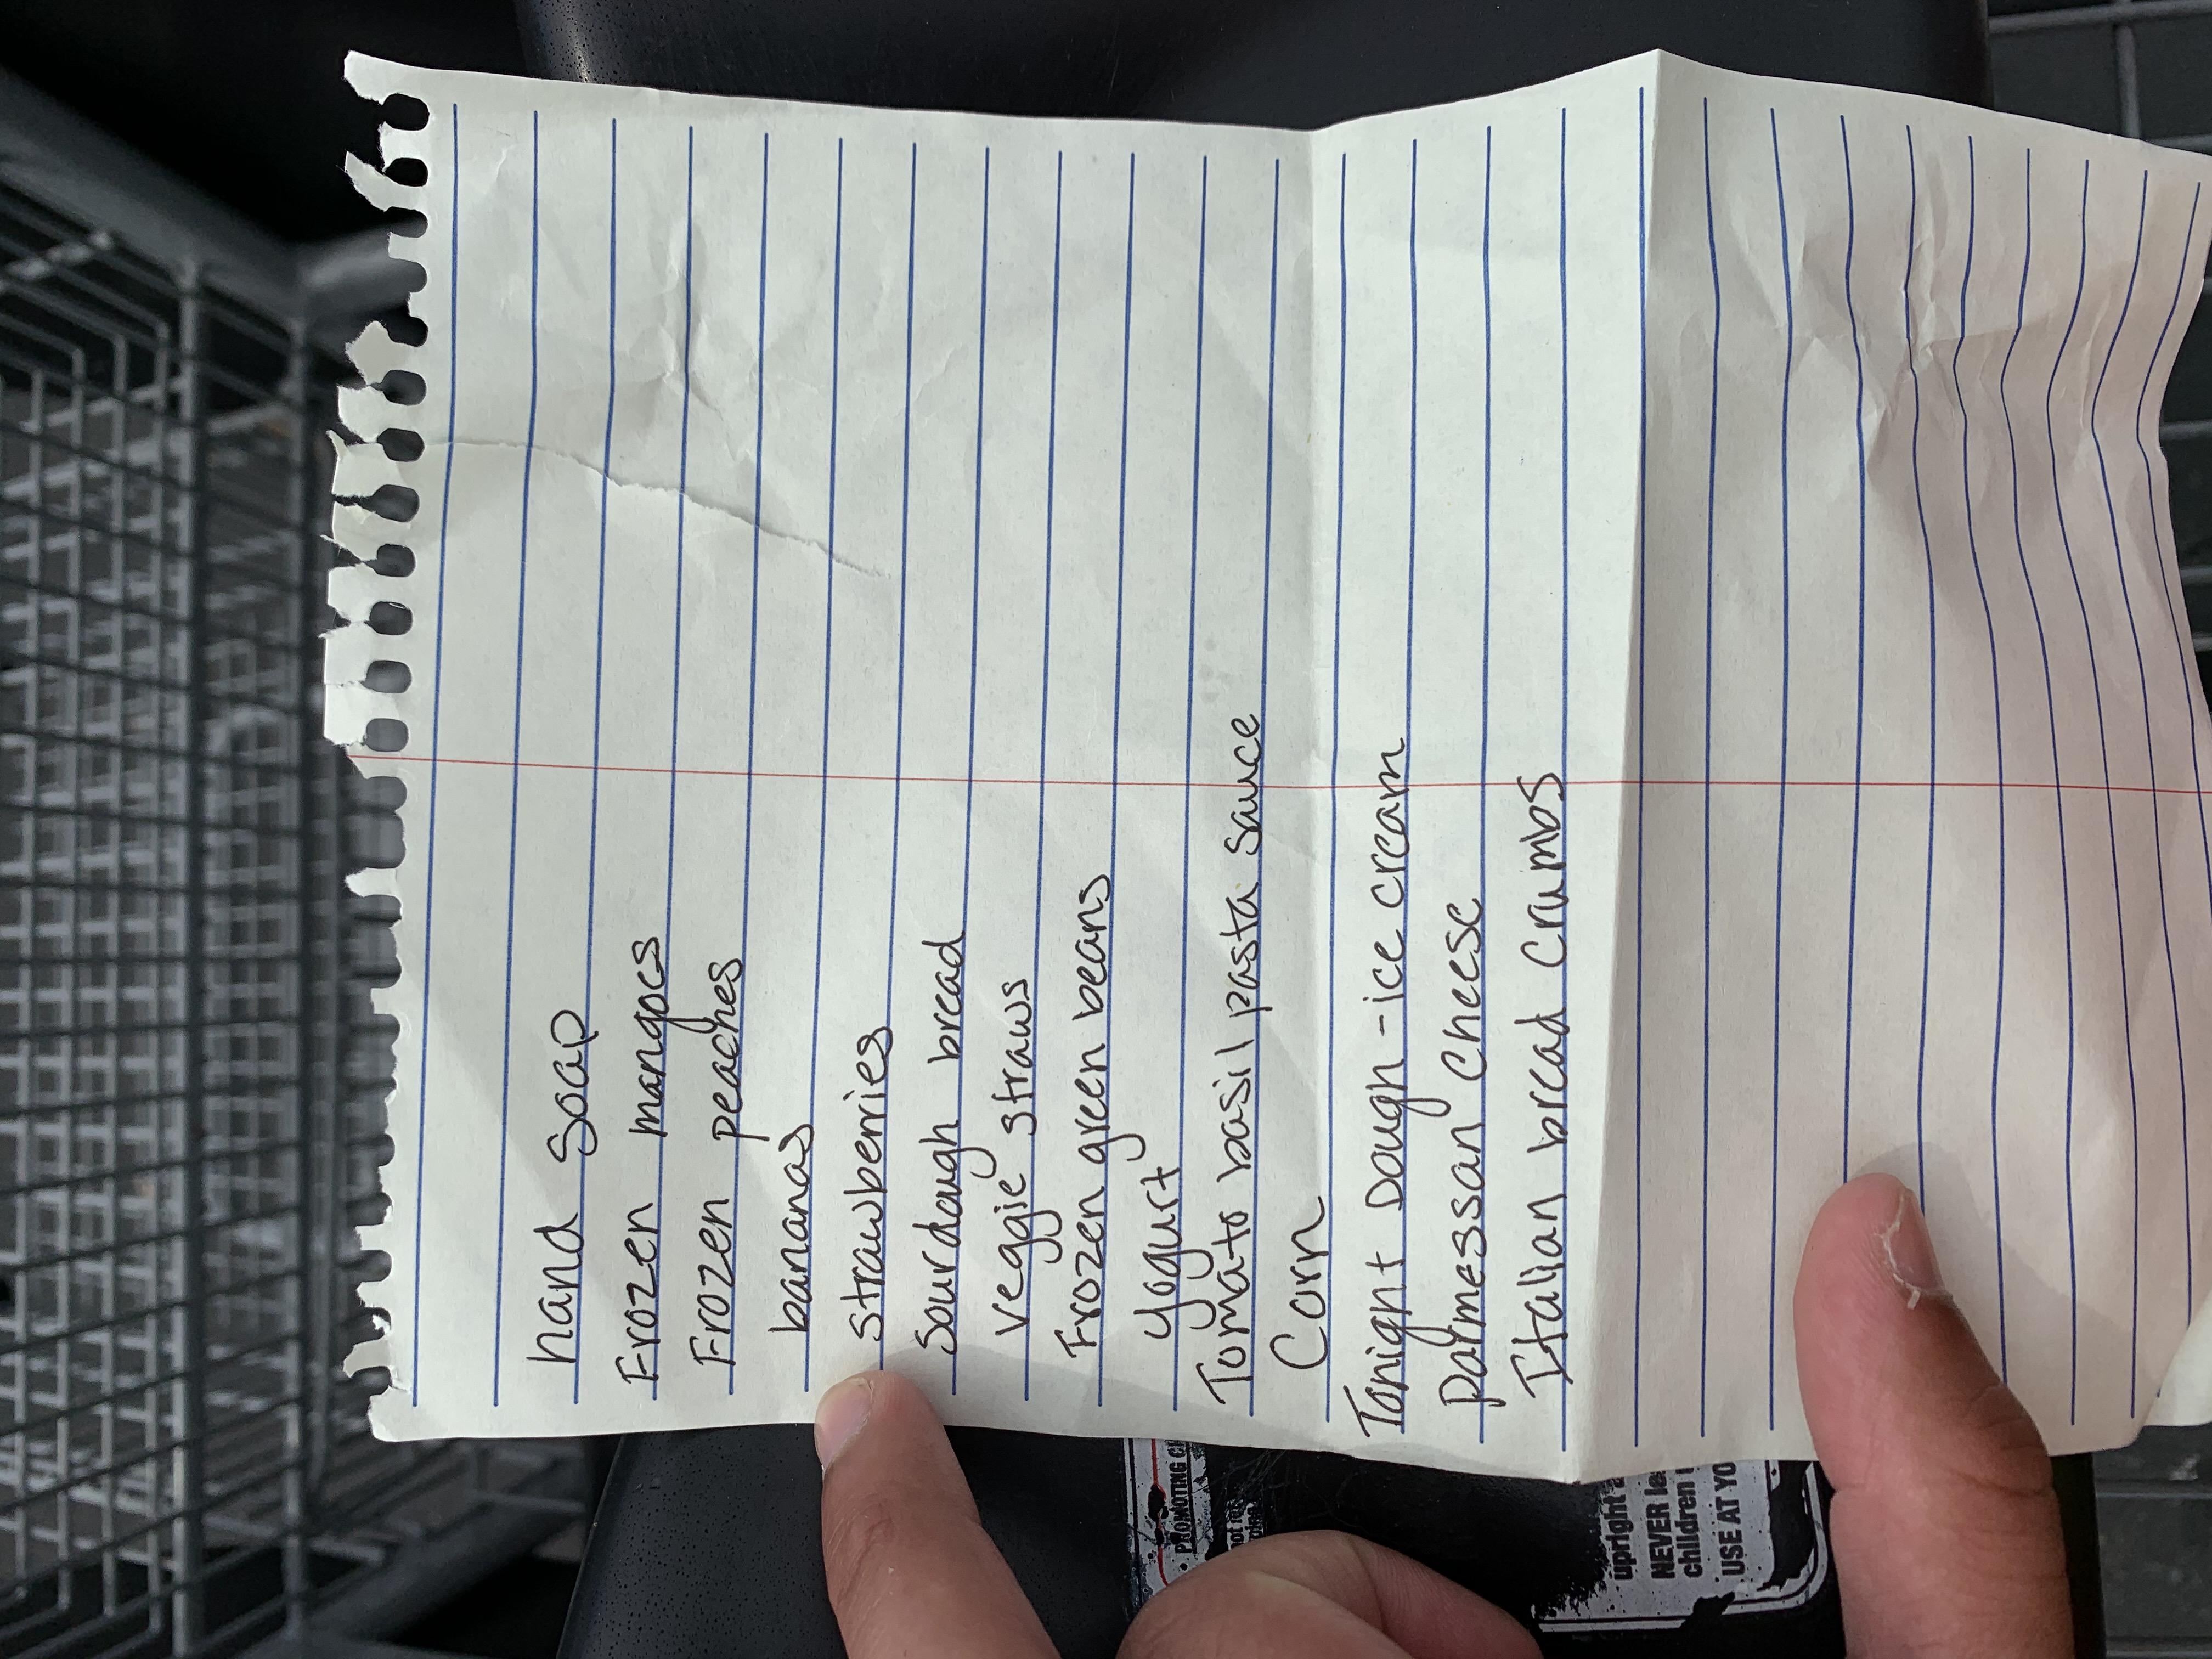 hand soap
Frozen mangoes
Frozen peaches
bananas
strawberries
Sourdough bread
Veggie straws
Frozen green beans
yogurt
Tomato basil pasta sauce
Corn
Tonight Dough - ice cream
Parmessan cheese
Italian bread crumbs
• PROMOTING
upright
NEVER
children
USE AT